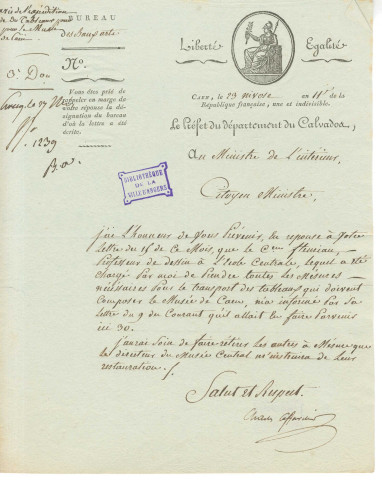 BUREAU
des Beaux arts
N.o
Vous êtes prié de
rappeler en marge de
votre réponse la dé-
signation du bureau
d'où la lettre a été
écrite.
3.e Don
1239
B. a.
Liberté
Egalité
CAEN, le 23 nivose an 11.e de la
République française, une et indivisible.
Le Préfet du département du Calvados,
Au Ministre de l'intérieur,
BIBLIOTHÈQUE
DE LA
VILLE
Citoyen Ministre,
j'ai l'honneur de Vous Prévenir, en réponse à Votre
Lettre du 16 de ce Mois, que le C.en fleuriau,
Professeur de dessin à l'école Centrale, lequel a été
chargé Par moi de Prendre toutes les Mesures
nécessaires Pour le transport des tableaux qui doivent
Composer le Musée de Caen, m'a informé Par sa
lettre du 9 du Courant qu'il allait en faire Parvenir
ici 30.
j'aurai Soin de faire retirer les autres à Mesure que
les directeurs du Musée Central m'instruira de Leur
restauration.
Salut et Respect.